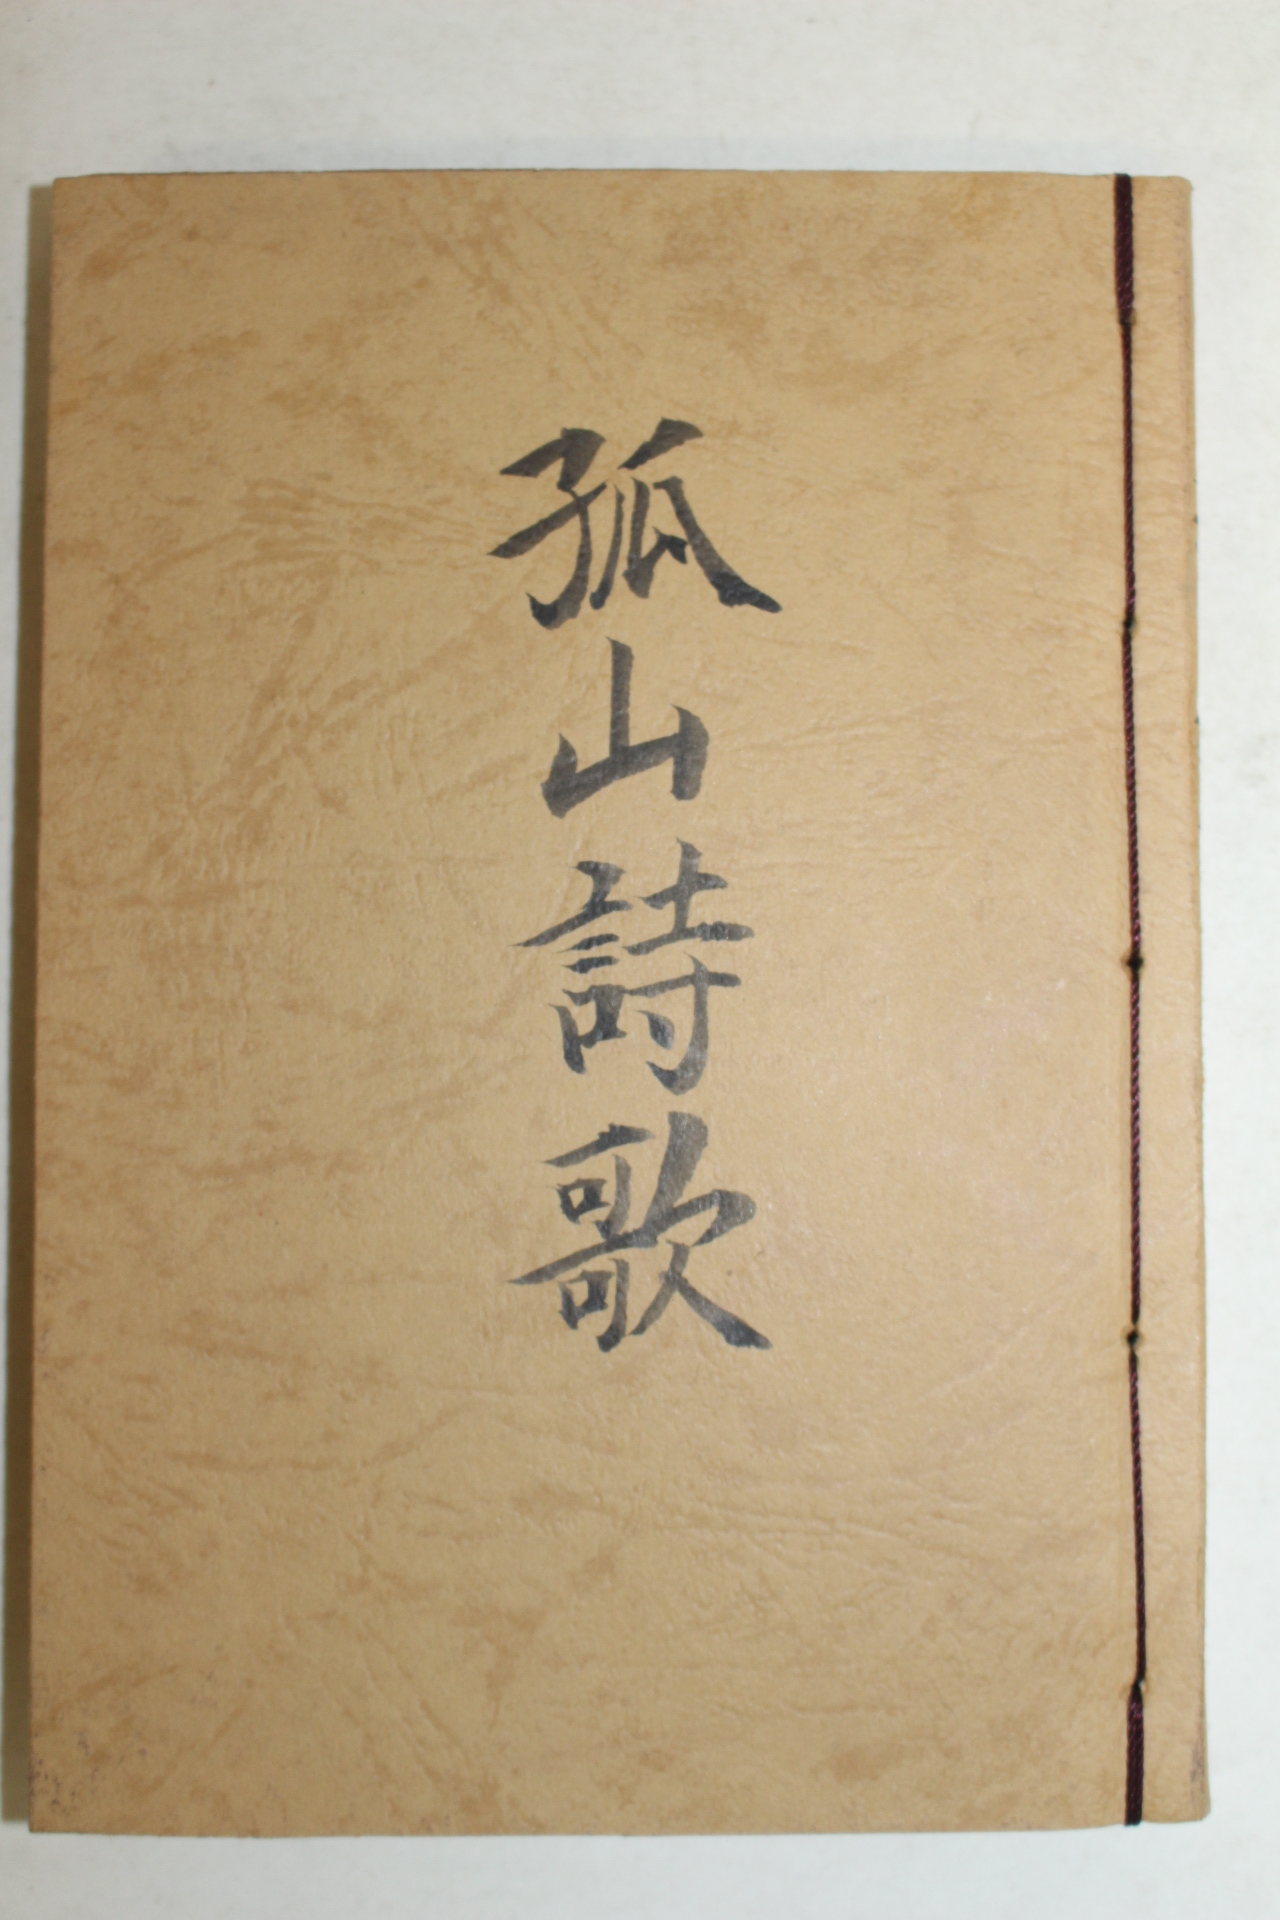 孤山詩歌